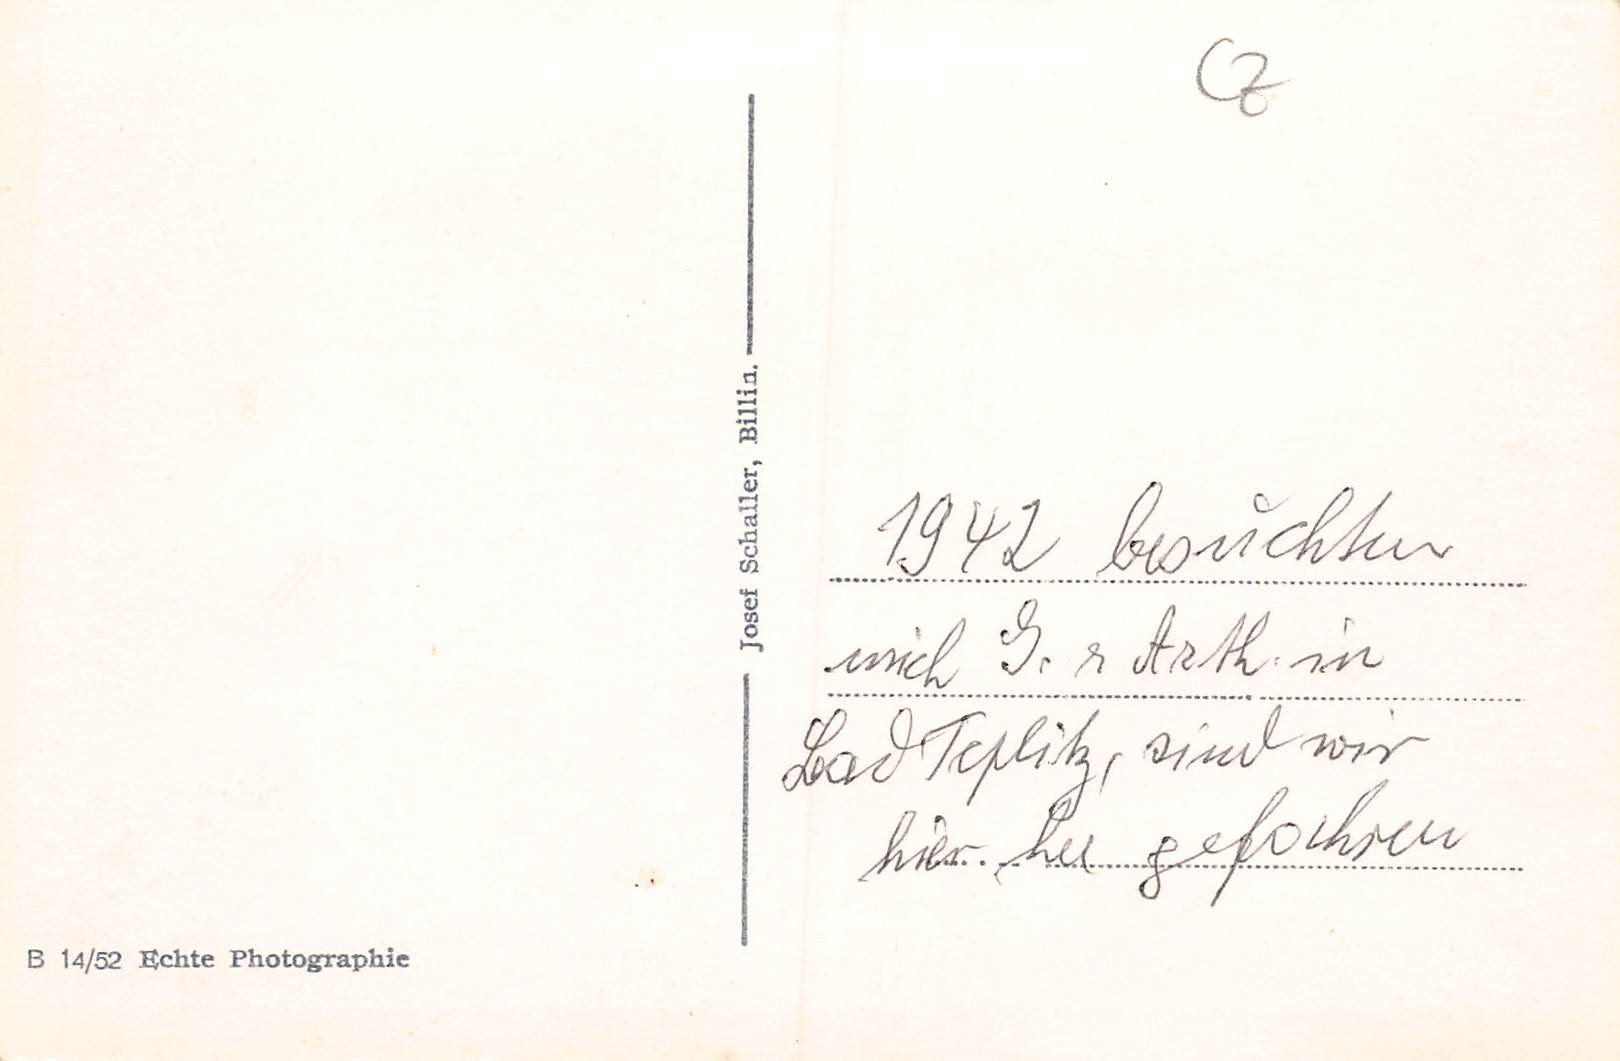 CZ
Josef Schaller, Billin.
1942 besuchten
mich G. r Arth. in
Bad Teplitz, sind wir
hier her gefahren
B 14/52 Echte Photographie